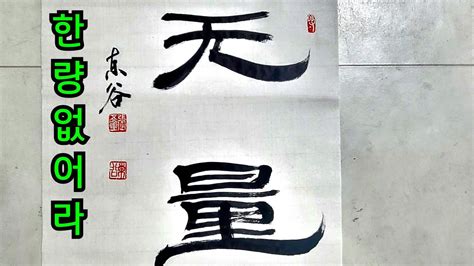 한량없어라
无量
东谷